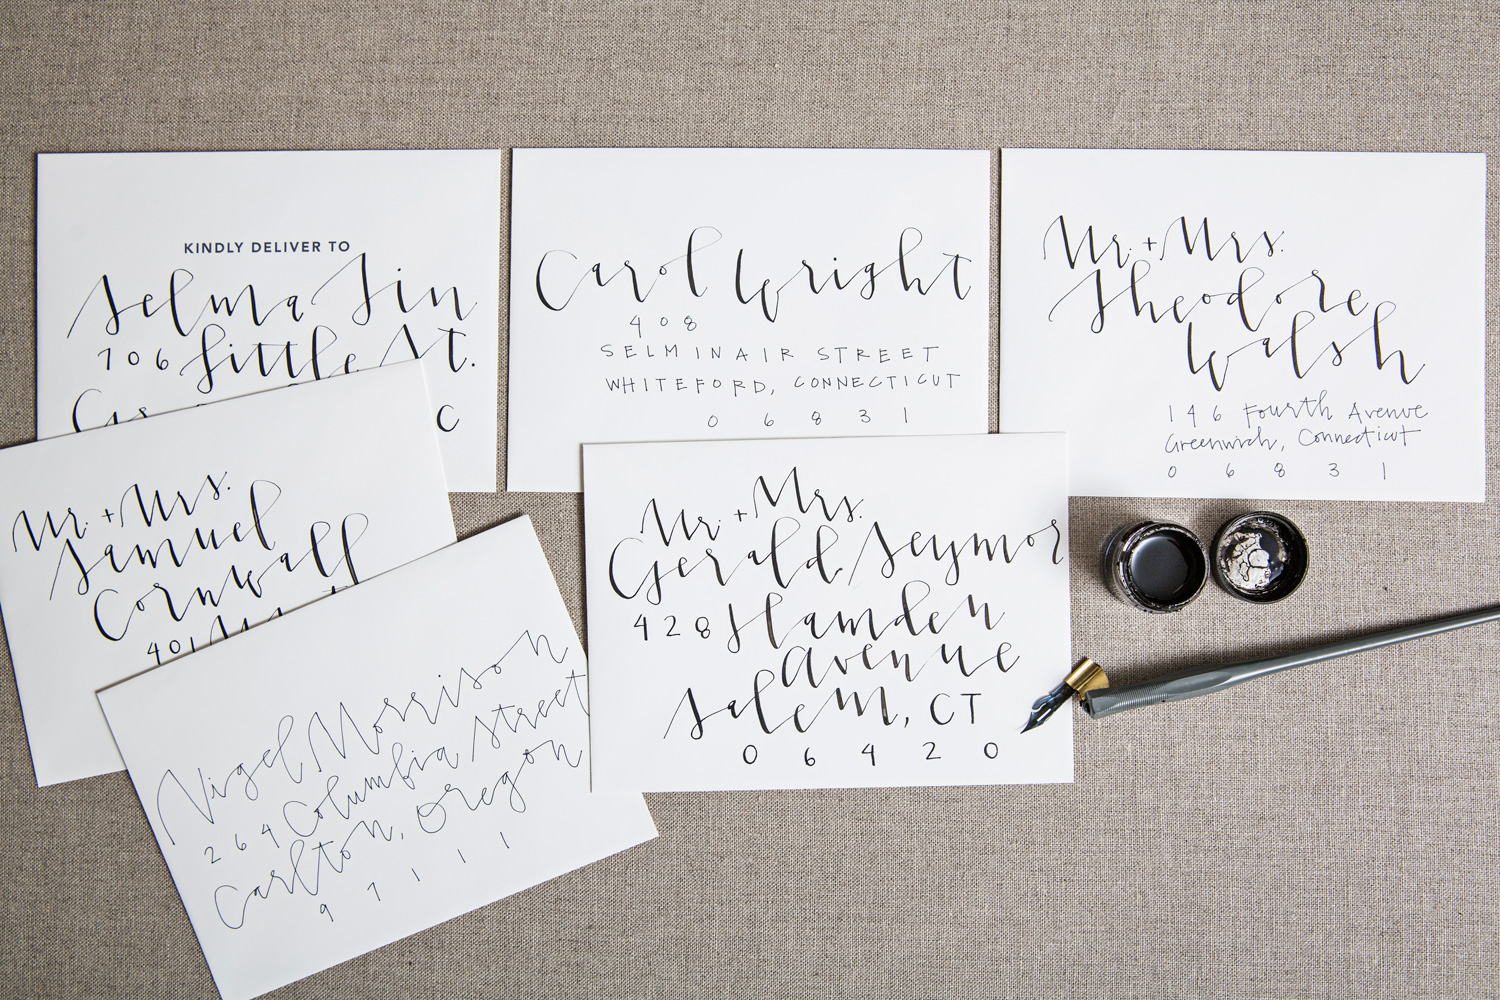 KINDLY DELIVER TO
Selma Lin
706 Little St.
C
Carol Wright
408
SELMINAIR STREET
WHITEFORD, CONNECTICUT
0 6 8 3 1
Mr. + Mrs.
Theodore
Walsh
146 Fourth Avenue
Greenwich, Connecticut
0 6 8 3 1
Mr. + Mrs.
Samuel
Cornwall
401
Mr. + Mrs.
Gerald Seymor
428 Hamden
Avenue
Salem, CT
0 6 4 2 0
Nigel Morrison
264 Columbia Street
Carlton, Oregon
9 7 1 1 1